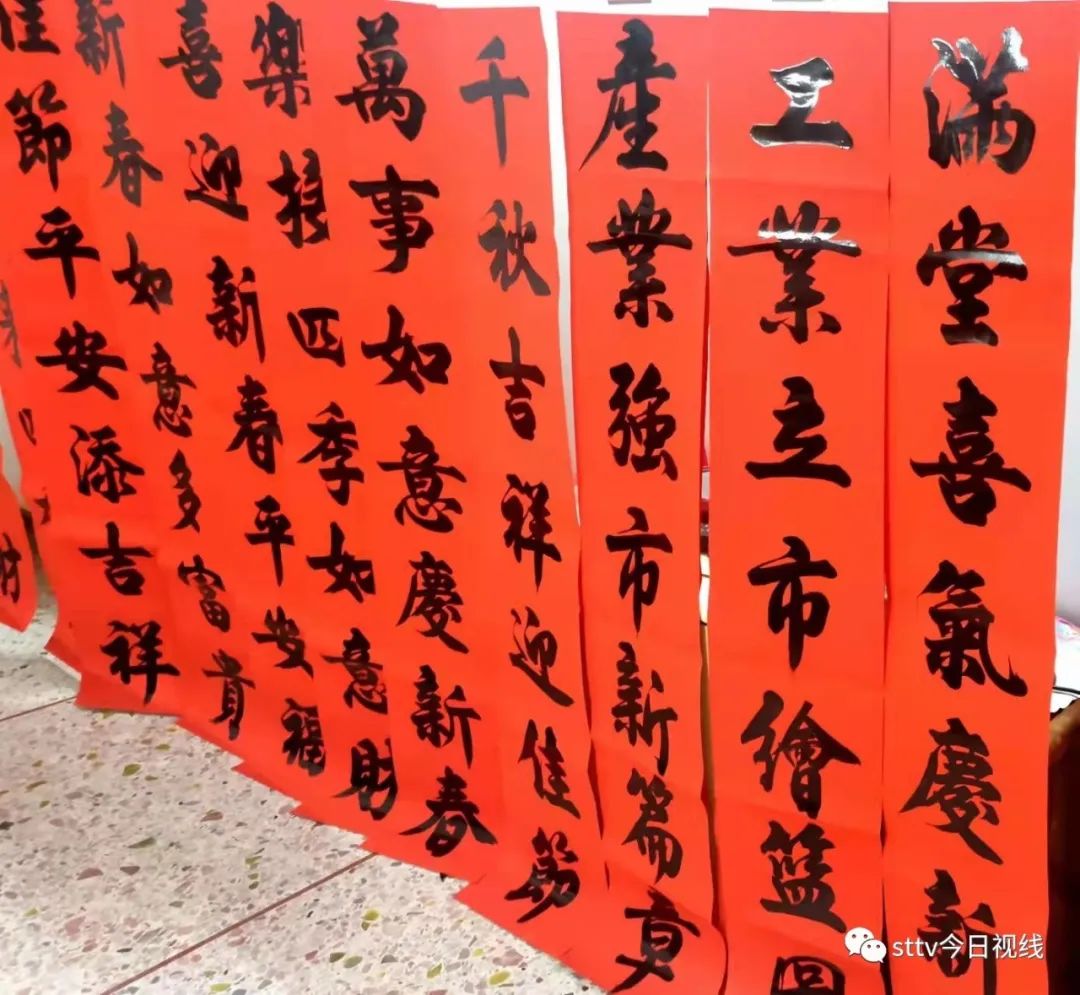 滿堂喜氣慶新
工業立市繪籃圖
產業強市新篇
千秋吉祥迎佳節
萬事如意慶新春
樂 四季如意財
喜迎新春平安福
新春如意多富貴
佳節平安添吉祥
財
sttv今日视线